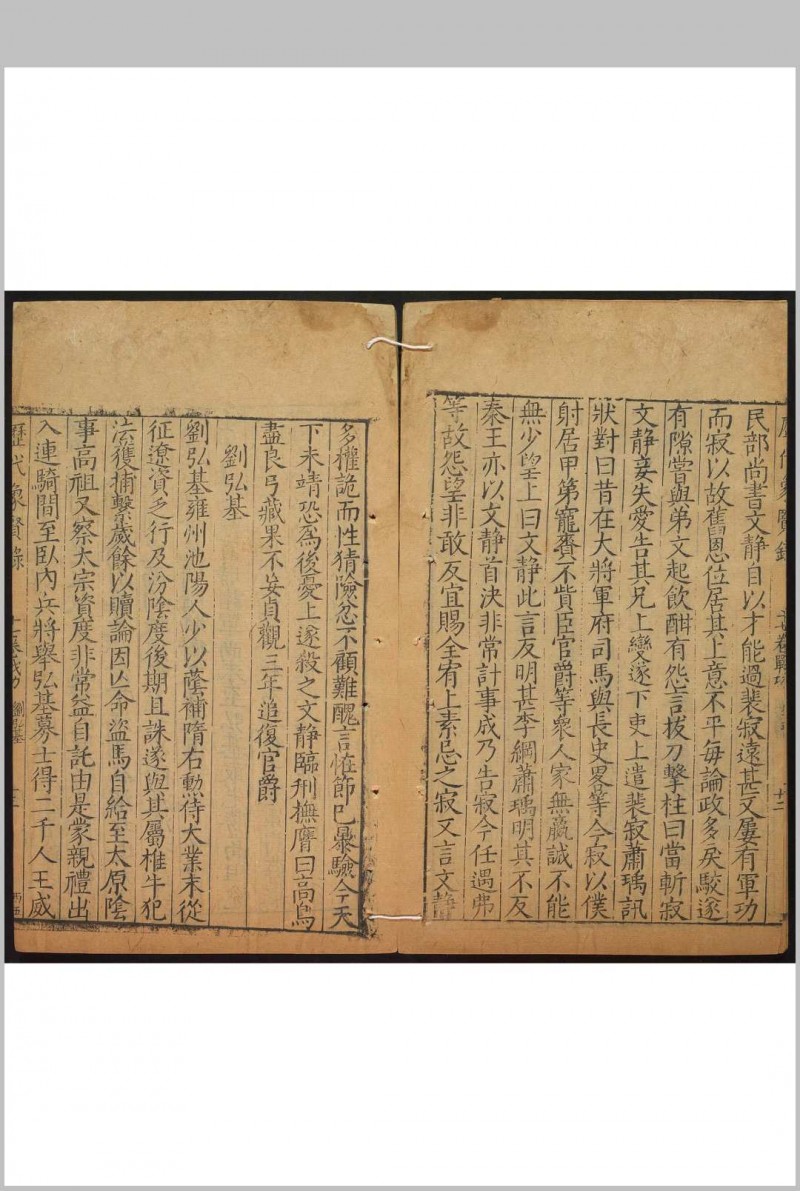 民部尚書文静自以才能過裴寂遠甚又屢有軍功
而寂以故舊恩位居其上意不平毎論政多戾駮遂
有隙嘗與弟文起飲酣有怨言拔刀擊柱曰當斬寂
文静妾失愛告其兄上變遂下吏上遣裴寂蕭瑀訊
狀對曰昔在大將軍府司馬與長史畧等今寂以僕
射居甲第寵賚不貲臣官爵等衆人家無贏誠不能
無少望上曰文静此言反明甚李綱蕭瑀明其不反
秦王亦以文静首決非常計事成乃告寂今任遇弗
等故怨望非敢反宜賜全宥上素忌之寂又言文静
多權詭而性猜險忿不顧難醜言恠節已暴驗今天
下未靖恐為後憂上遂殺之文静臨刑撫膺曰高鳥
盡良弓藏果不妄貞觀三年追復官爵
劉弘基
劉弘基雍州池陽人少以蔭補隋右勲侍大業末從
征遼資乏行及汾陰度後期且誅遂與其屬椎牛犯
法獲捕繫歲餘以贖論因亡命盜馬自給至太原陰
事高祖又察太宗資度非常益自託由是蒙親禮出
入連騎間至臥内兵將舉弘基募士得二千人王威
歷代象賢錄